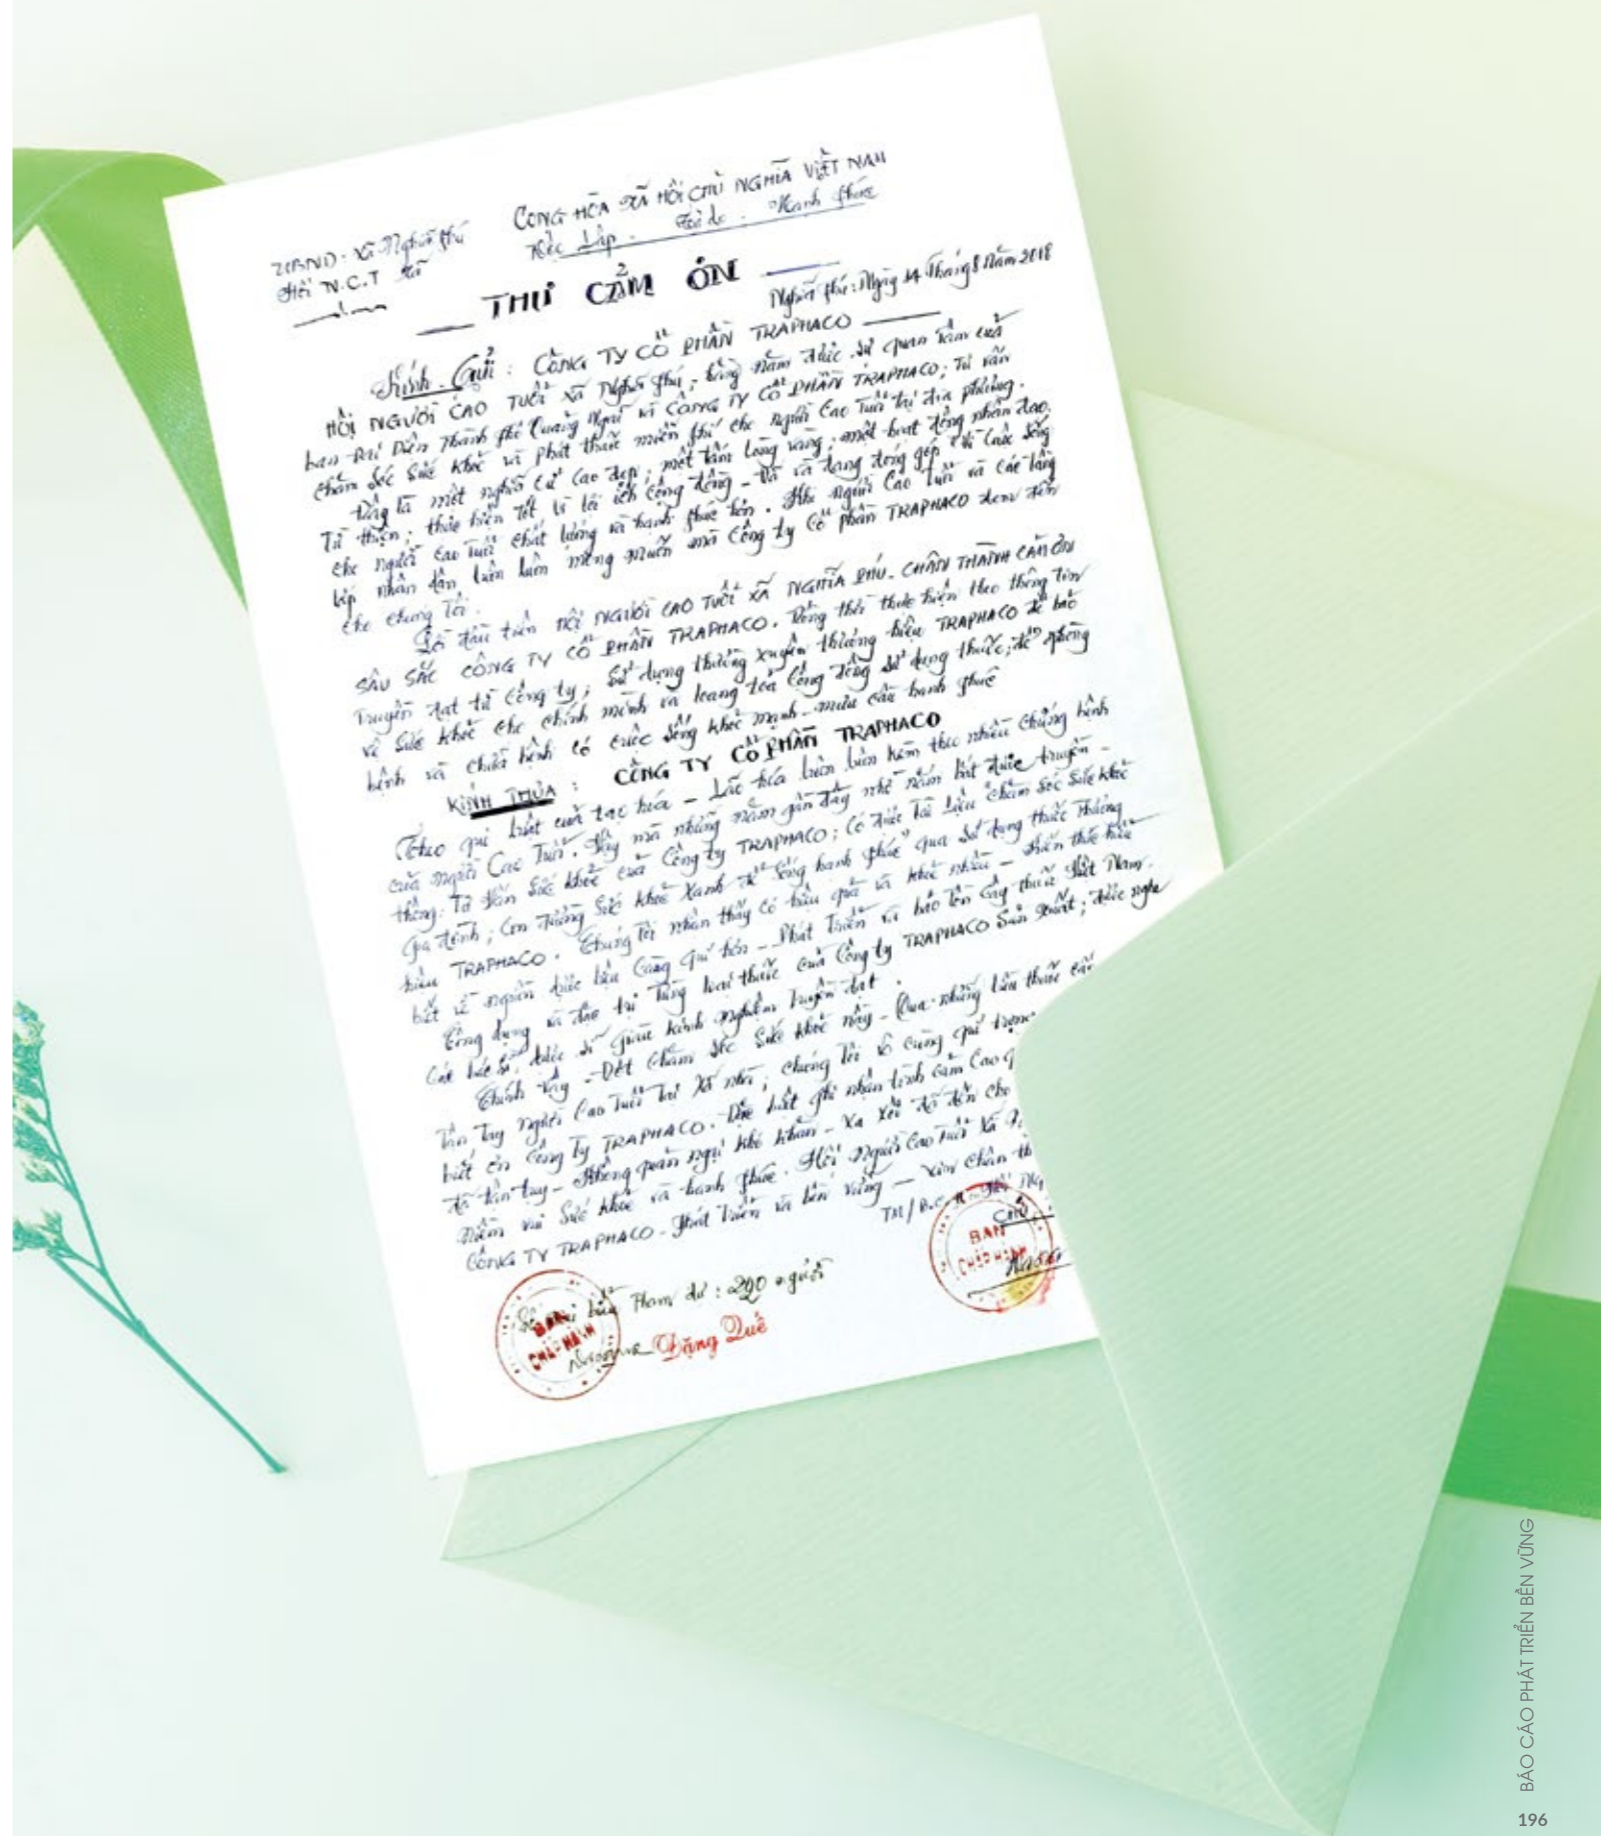 UBND: xã Nghĩa Phú
Hội N.C.T xã
CỘNG HÒA XÃ HỘI CHỦ NGHĨA VIỆT NAM
Độc Lập - Tự do - Hạnh phúc
THƯ CẢM ƠN
Nghĩa Phú: Ngày 14 Tháng 8 Năm 2018
Kính Gửi: CÔNG TY CỔ PHẦN TRAPHACO
HỘI NGƯỜI CAO TUỔI xã Nghĩa Phú, hằng năm được sự quan tâm của
ban Đại Diện Thành phố Quảng Ngãi và CÔNG TY CỔ PHẦN TRAPHACO; Tư vấn
chăm sóc sức khỏe và phát thuốc miễn phí cho người Cao Tuổi tại địa phương.
Đây là một nghĩa cử cao đẹp, một tấm lòng vàng, một hoạt động nhân đạo.
Từ thiện; thực hiện tốt vì lợi ích Cộng đồng - Đã và đang đóng góp vì cuộc sống
cho người cao tuổi chất lượng và hạnh phúc hơn. Hội người Cao Tuổi và các tầng
lớp nhân dân luôn luôn mong muốn mà Công ty Cổ phần TRAPHACO đem đến
cho chúng Tôi.
đầu tiên HỘI NGƯỜI CAO TUỔI XÃ NGHĨA PHÚ. CHÂN THÀNH CẢM ƠN
SÂU SẮC CÔNG TY CỔ PHẦN TRAPHACO. Đồng thời thực hiện theo thông Tin
Truyền đạt từ Công ty; Sử dụng thường xuyên thương hiệu TRAPHACO để bảo
vệ sức khỏe cho chính mình và loang tỏa Cộng đồng sử dụng thuốc; để phòng
bệnh và chữa bệnh có cuộc sống khỏe mạnh - mưu cầu hạnh phúc
KÍNH THƯA: CÔNG TY CỔ PHẦN TRAPHACO
Theo qui luật của tạo hóa - Lão hóa luôn luôn kèm theo nhiều chứng bệnh
của người Cao Tuổi. Vậy mà những năm gần đây nhờ nắm bắt được truyền
thông: Tư vấn sức khỏe của Công ty TRAPHACO; Có được Tài Liệu "chăm sóc sức khỏe
gia đình; Con đường Sức khỏe Xanh để Sống hạnh phúc" qua sử dụng thuốc thương
hiệu TRAPHACO. Chúng Tôi nhận thấy có hiệu quả và khỏe nhiều
biết về nguồn dược liệu Càng quí hơn - Phát Triển và bảo Tồn Cây thuốc Việt Nam.
Công dụng và điều trị từng loại thuốc của Công ty TRAPHACO Sản xuất; được nghe
Các bác sĩ, dược sĩ giàu kinh nghiệm truyền đạt.
Chính vậy - Đợt chăm sóc sức khỏe này - Qua những liều thuốc
Tận Tay người Cao Tuổi Tại xã nhà; chúng Tôi vô cùng quí trọng
biết ơn Công Ty TRAPHACO. Đặc biệt ghi nhận tình cảm Cao
đã tận tụy - Không quản ngại khó khăn - Xa xôi đã đến cho
niềm vui Sức khỏe và hạnh phúc. Hội Người Cao Tuổi Xã
CÔNG TY TRAPHACO - Phát Triển và bền vững - xin chân th
TM/
BAN
CHẤP HÀNH
tham dự: 290 người
BAN
CHẤP HÀNH
Đặng Quế
BÁO CÁO PHÁT TRIỂN BỀN VỮNG
196